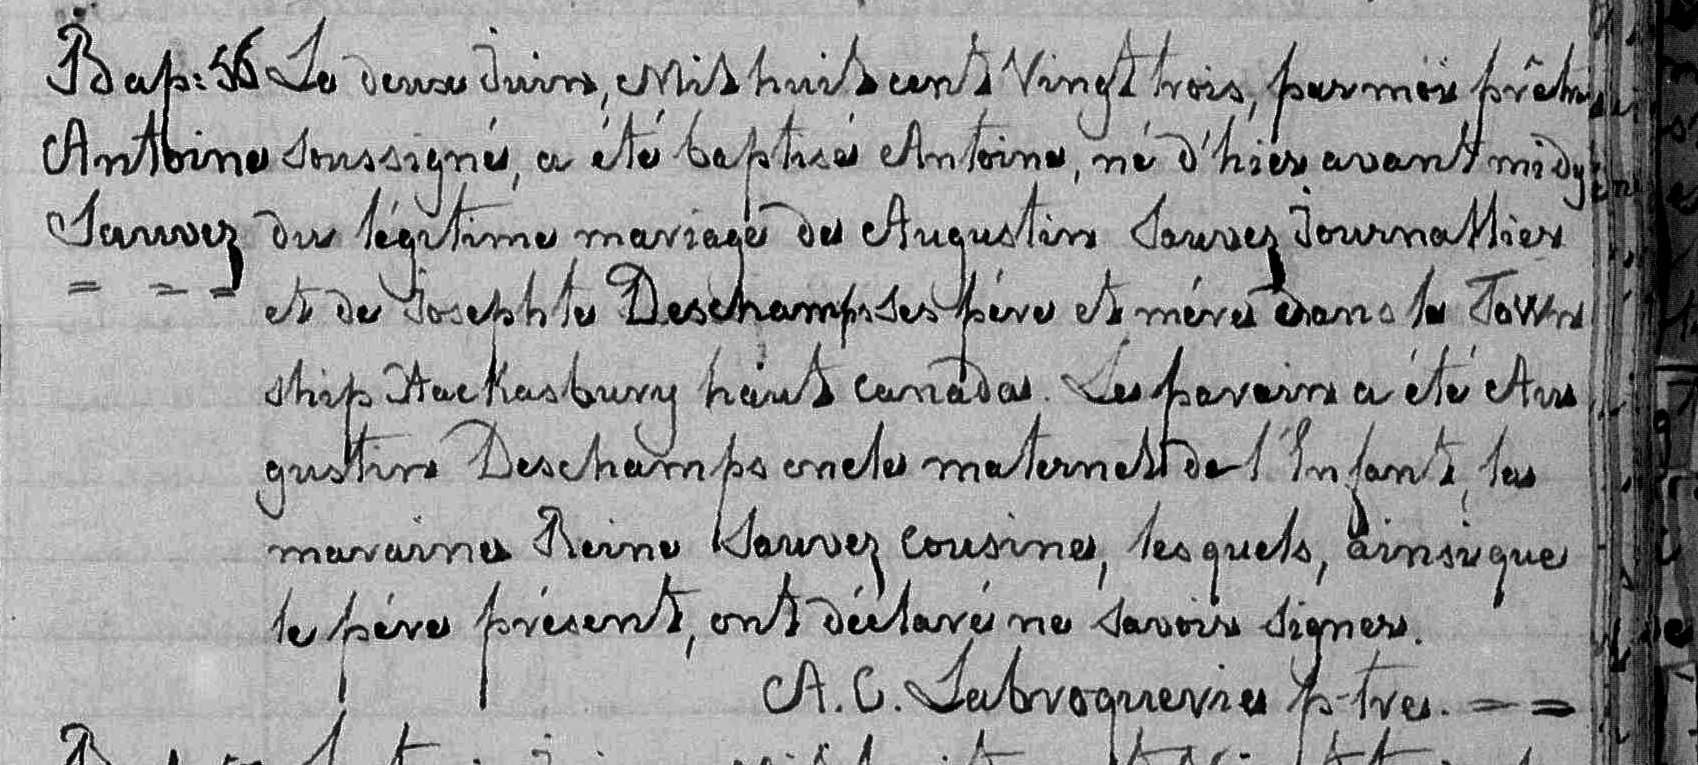 Bap: 56 Le deux Juin, Mil huit cent Vingt trois, par moi prêtre
Antoine soussigné, a été baptisé Antoine, né d'hier avant midy
Sauvez du légitime mariage de Augustin Sauvez Journallier
= = = et de Josephte Deschamps ses père et mère dans le Town
ship Hackasbury haut canada. Le parain a été Au
gustin Deschamps oncle maternel de l'Enfant, la
maraine Reine Sauvez cousine, lesquels, ainsi que
le père présent, ont déclaré ne savoir signer.
A. C. Labroquerie p-tre. = =